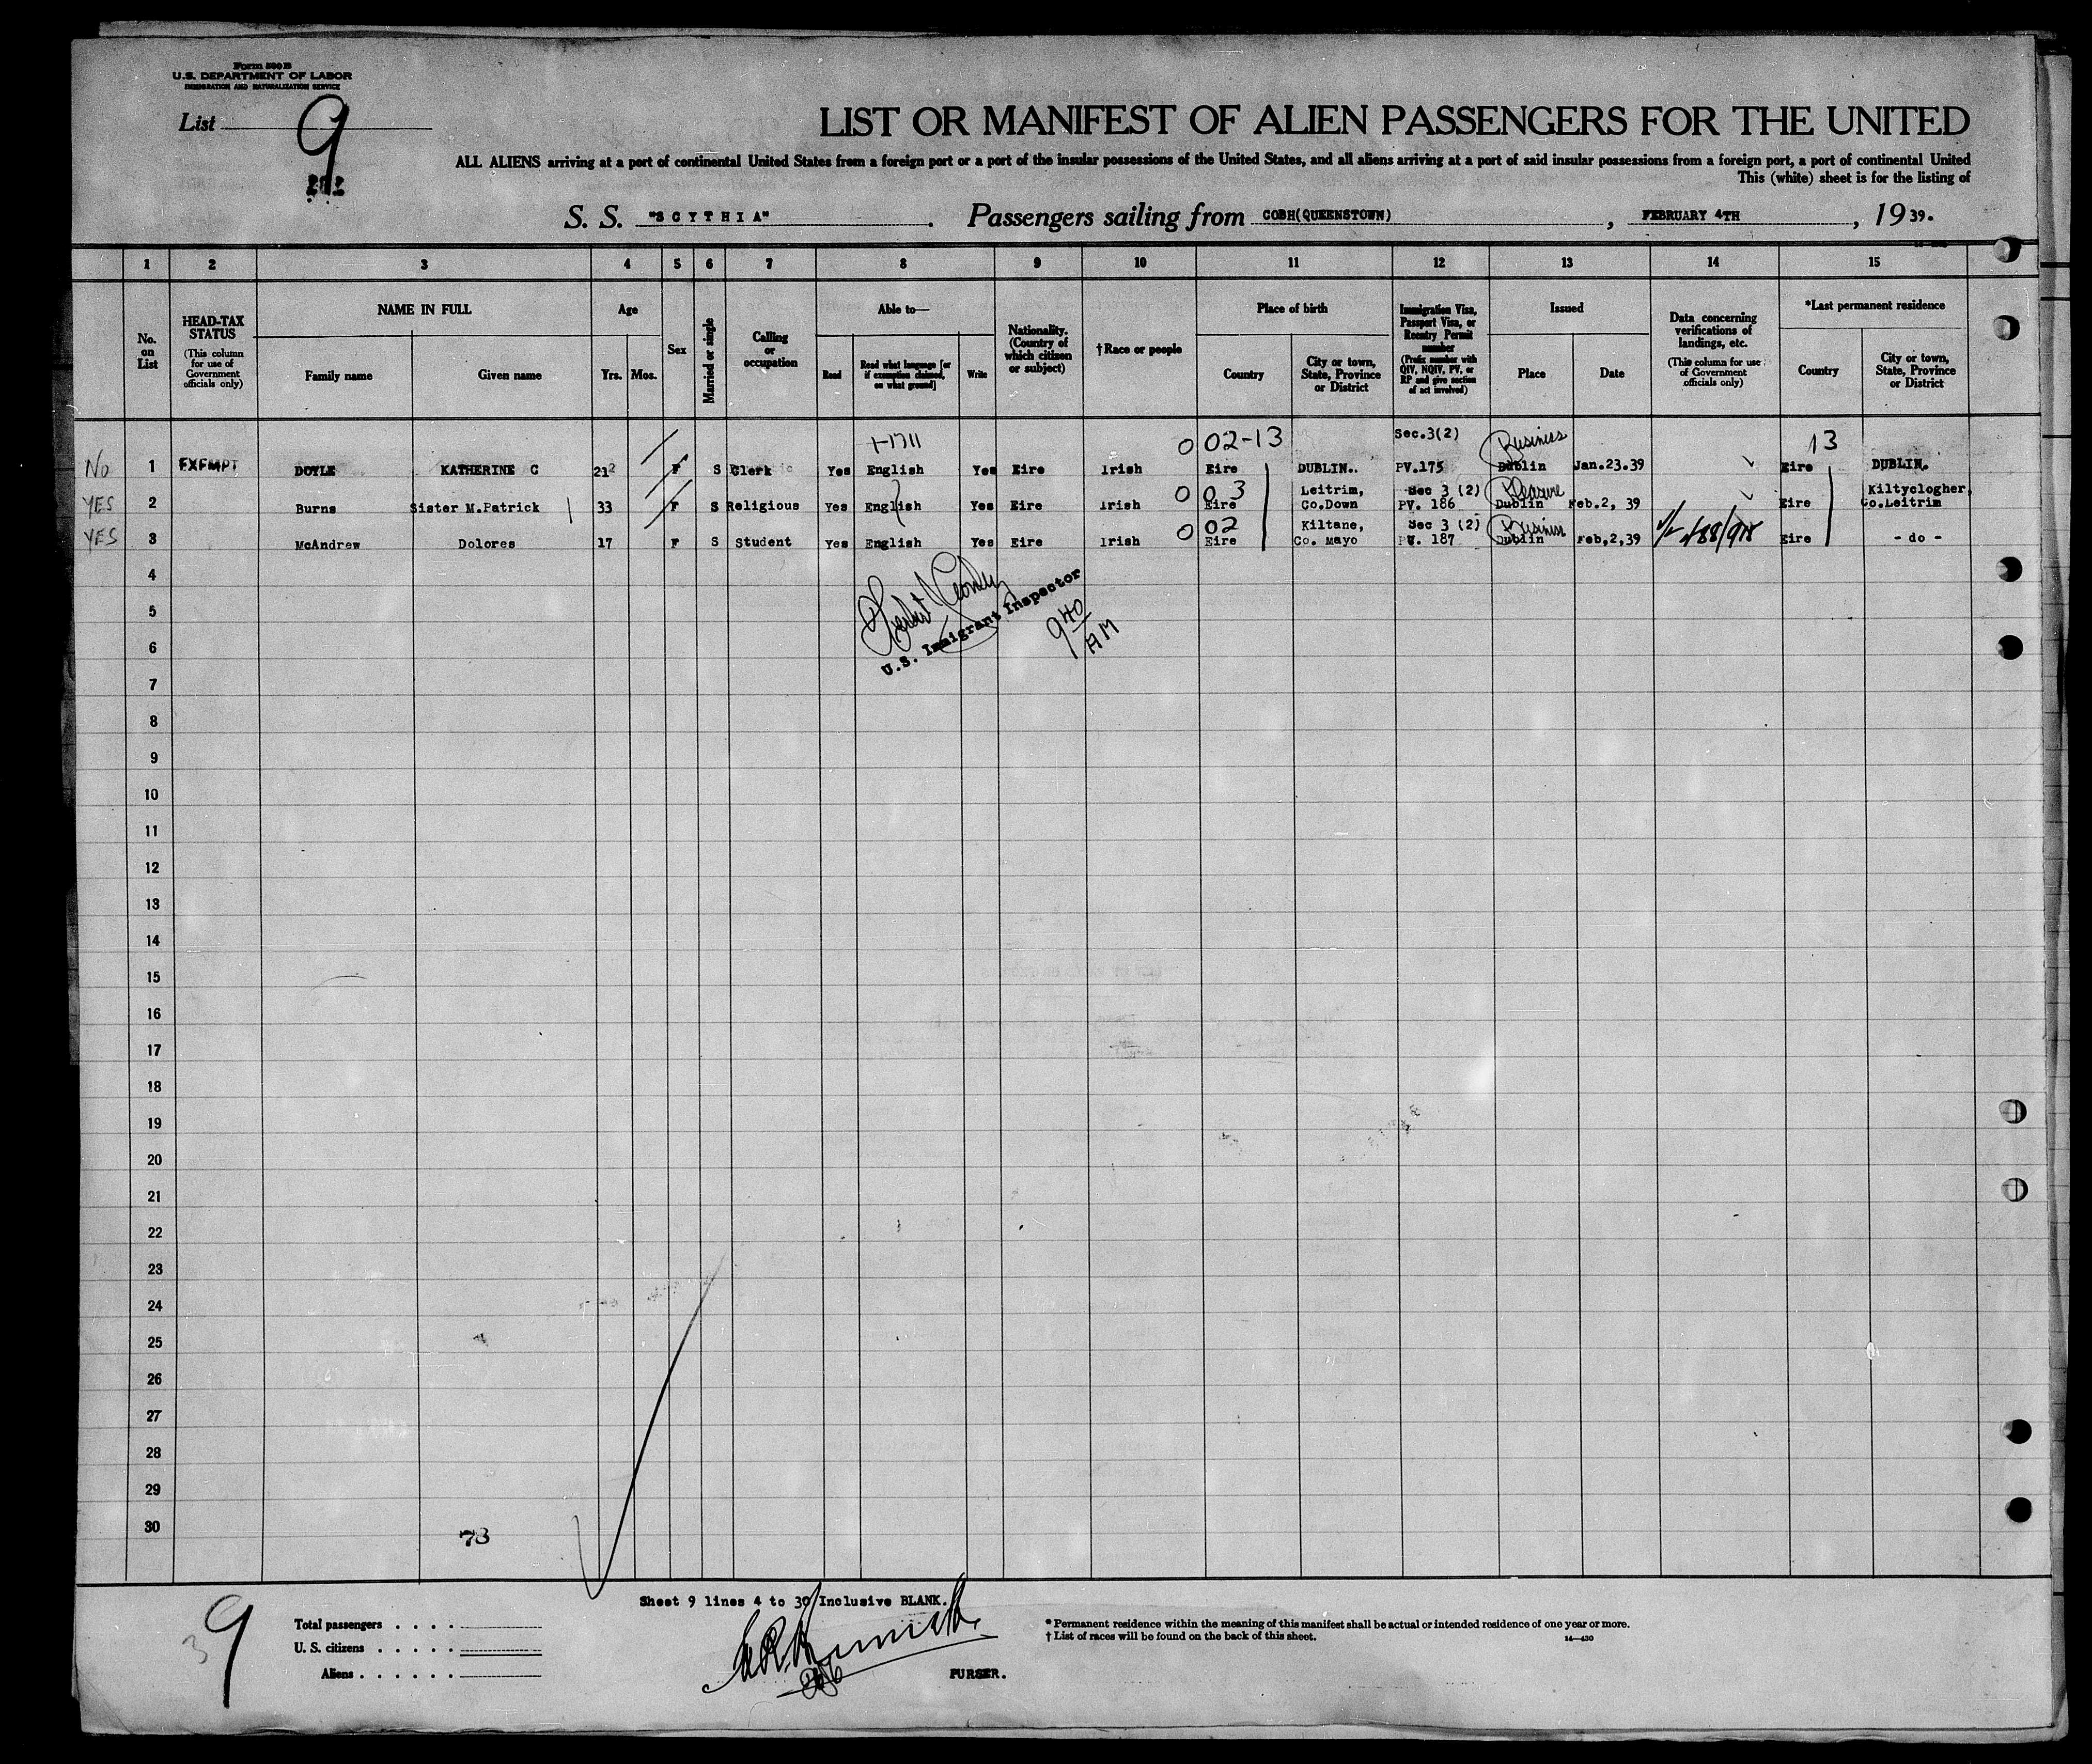 Form 500 B
U.S. DEPARTMENT OF LABOR
IMMIGRATION AND NATURALIZATION SERVICE
List 9
LIST OR MANIFEST OF ALIEN PASSENGERS FOR THE UNITED
ALL ALIENS arriving at a port of continental United States from a foreign port or a port of the insular possessions of the United States, and all aliens arriving at a port of said insular possessions from a foreign port, a port of continental United
This (white) sheet is for the listing of
S. S. "SCYTHIA". Passengers sailing from COBH(QUEENSTOWN), FEBRUARY 4TH, 19 39.
1 2 3 4 5 6 7 8 9 10 11 12 13 14 15
No. on List
HEAD-TAX STATUS
(This column for use of Government officials only)
NAME IN FULL
Family name Given name
Age
Yrs. Mos.
Sex
Married or single
Calling or occupation
Able to—
Read Read what language [or if exemption claimed, on what ground] Write
Nationality. (Country of which citizen or subject)
†Race or people
Place of birth
Country City or town, State, Province or District
Immigration Visa, Passport Visa, or Reentry Permit number
(Prefix number with QIV, NQIV, PV, or RP and give section of act involved)
Issued
Place Date
Data concerning verifications of landings, etc.
(This column for use of Government officials only)
*Last permanent residence
Country City or town, State, Province or District
0 02-13 Sec.3(2) Business 13
No 1 EXEMPT DOYLE KATHERINE C 21² F S Clerk Yes English Yes Eire Irish Eire DUBLIN.. PV.175 Dublin Jan.23.39 Eire DUBLIN.
0 03 Leitrim, Sec 3 (2) Pleasure Kiltyclogher,
YES 2 Burns Sister M.Patrick 33 F S Religious Yes English Yes Eire Irish Eire Co.Down PV. 186 Dublin Feb.2, 39 Eire Co.Leitrim
0 02 Kiltane, Sec 3 (2) Business
YES 3 McAndrew Dolores 17 F S Student Yes English Yes Eire Irish Eire Co. Mayo PV. 187 Dublin Feb,2,39 Eire - do -
4
U.S. Immigrant Inspector
9 40 AM
5
6
7
8
9
10
11
12
13
14
15
16
17
18
19
20
21
22
23
24
25
26
27
28
29
30
73
Sheet 9 lines 4 to 30 Inclusive BLANK.
39
Total passengers . . . .
U. S. citizens . . . . .
Aliens . . . . . .
PURSER.
* Permanent residence within the meaning of this manifest shall be actual or intended residence of one year or more.
† List of races will be found on the back of this sheet.
14—430